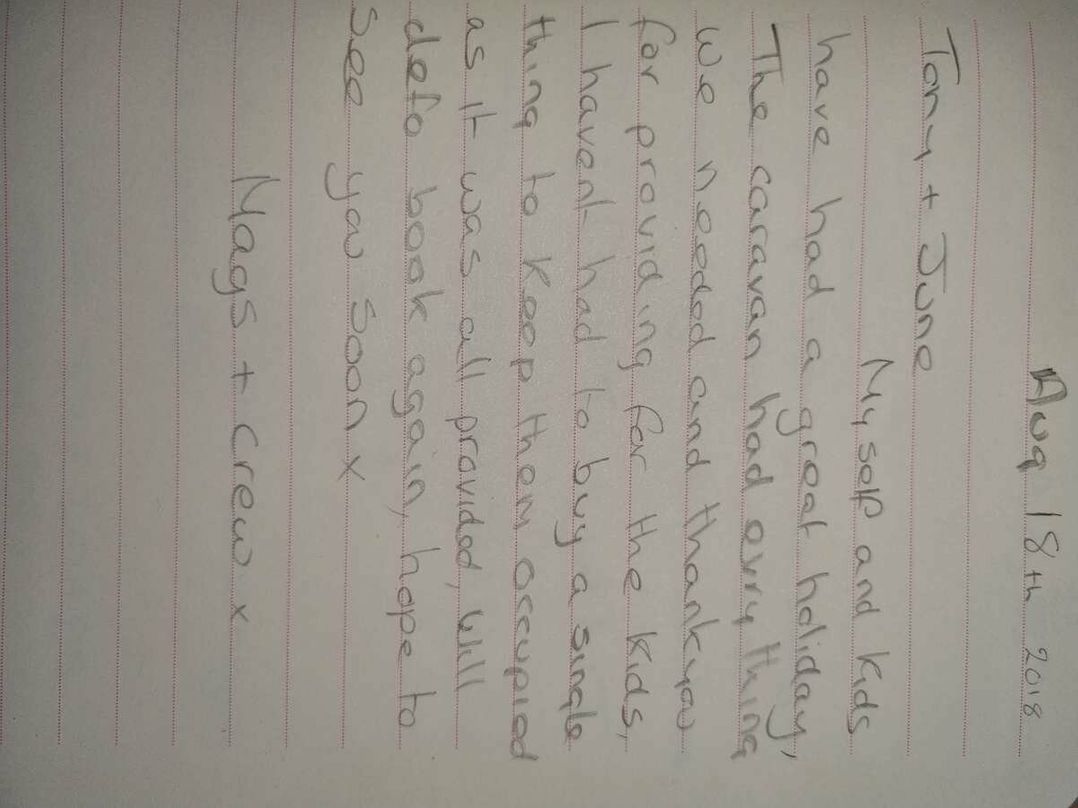 Aug 18th 2018
Tony + June
Myself and kids
have had a great holiday,
The caravan had evrything
we needed and thankyou
for providing for the kids,
I havent had to buy a single
thing to keep them occupied
as it was all provided, will
defo book again, hope to
see you soon x
Mags + Crew x